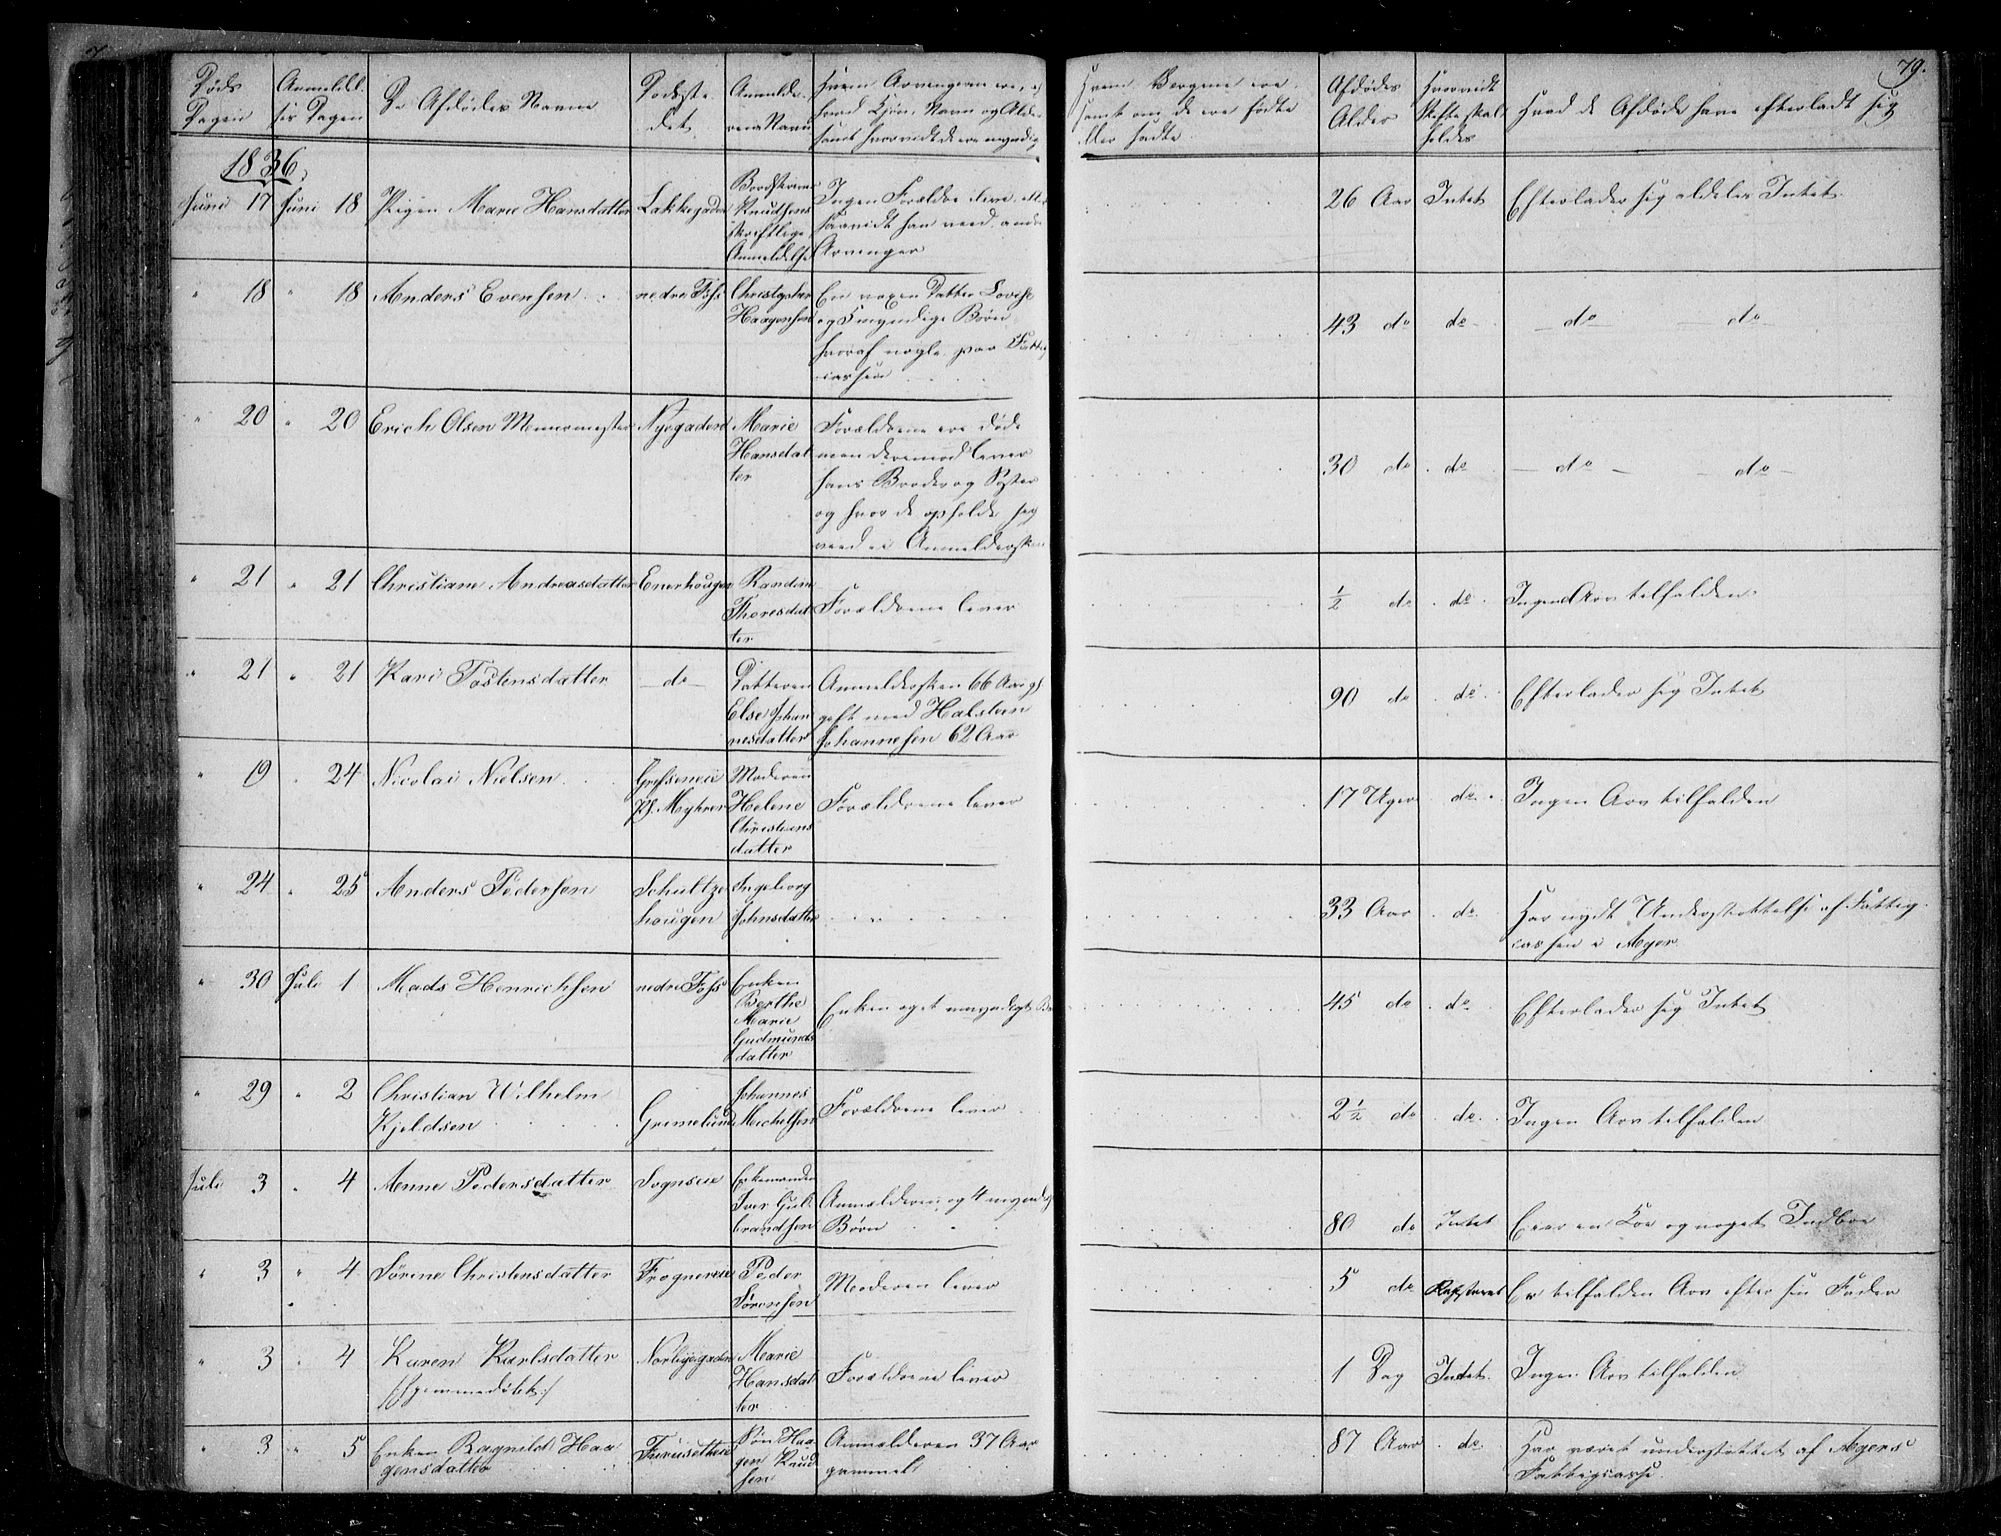 79.
Døds Dagen
Anmeldelsis Dagen
De Afdødes Navne
Dødsstedet
Anmelderens Navn
Hvem Arvingerne ere, af hvad Kjøn, Navn og Alder samt hvorvidt de ere myndig
Hvem Værgerne ere samt om de ere fødte eller
Afdødes Alder
Hvorvidt Skifte skal holdes
Hvad de Afdøde have efterladt sig
1836.
Juni 17 Juni 18 Pigen Marie Hansdatter Lakkegaden Knudsens skriftlige Anmeldelse Ingen Forældre ilive saavidt han veed, andre Arvinger 26 Aar Intet Efterlader sig aldeles Intet
" 18 " 18 Anders Evensen nedre Foss Christopher Haagensen En voxen Datter Lovise og 5 myndige Børn hvoraf nogle paa Fattigcassen 43 do do do do
" 20 " 20 Erich Olsen Muurmester Nyegaden Marie Hansdatter Forældrene ere døde men derimod lever hans Broder og Søster og hvor de opholde sig veed ei Anmeldersken 30 do do do do
" 21 " 21 Christiane Andreasdatter Enerhougen Randine Thoresdatter Forældrene lever 1/2 do do Ingen Arv tilfalden
" 21 " 21 Kari Tostensdatter do Datteren Else Johannesdatter Anmeldersken 66 Aar gl gift med Halsteen Johannesen 62 Aar 90 do do Efterlader sig Intet
" 19 " 24 Nicolai Nielsen Grefseneie Pl. Myhrer Moderen Helene Christensdatter Forældrene lever 17 Uger do Ingen Arv tilfalden
" 24 " 25 Anders Pedersen Schultzehougen Ingeborg Johnsdatter 33 Aar do Har nydt Understøttelse af Fattigcassen i Ager
" 30 Juli 1 Mads Henrichsen nedre Foss Enken Berthe Marie Gudmundsdatter Enken og et umyndigt 45 do do Efterlader sig Intet
" 29 " 2 Christian Wilhelm Kjeldsen Grimelund Johannes Michelsen Forældrene lever 2 1/2 do do Ingen Arv tilfalden
Juli 3 " 4 Anne Pedersdatter Sognseie Enkemanden Iver Gulbrandsen Anmelderen og 4 myndige Børn 80 do Intet Eier en Koe og noget Indboe
" 3 " 4 Sørine Christensdatter Frognereie Peder Sørensen Moderen lever 5 do Er tilfalden Arv efter sin Fader
" 3 " 4 Karen Karlsdatter /:hjemmedøbt:/ Norbygaden Marie Hansdatter Forældrene lever 1 Dag Intet Ingen Arv tilfalden
" 3 " 5 Enken Ragnild Haagensdatter Furusetheie Søn Haagen Knudsen Anmelderen 37 Aar gammel 87 Aar do Har været understøttet af Agers Fattigcasse